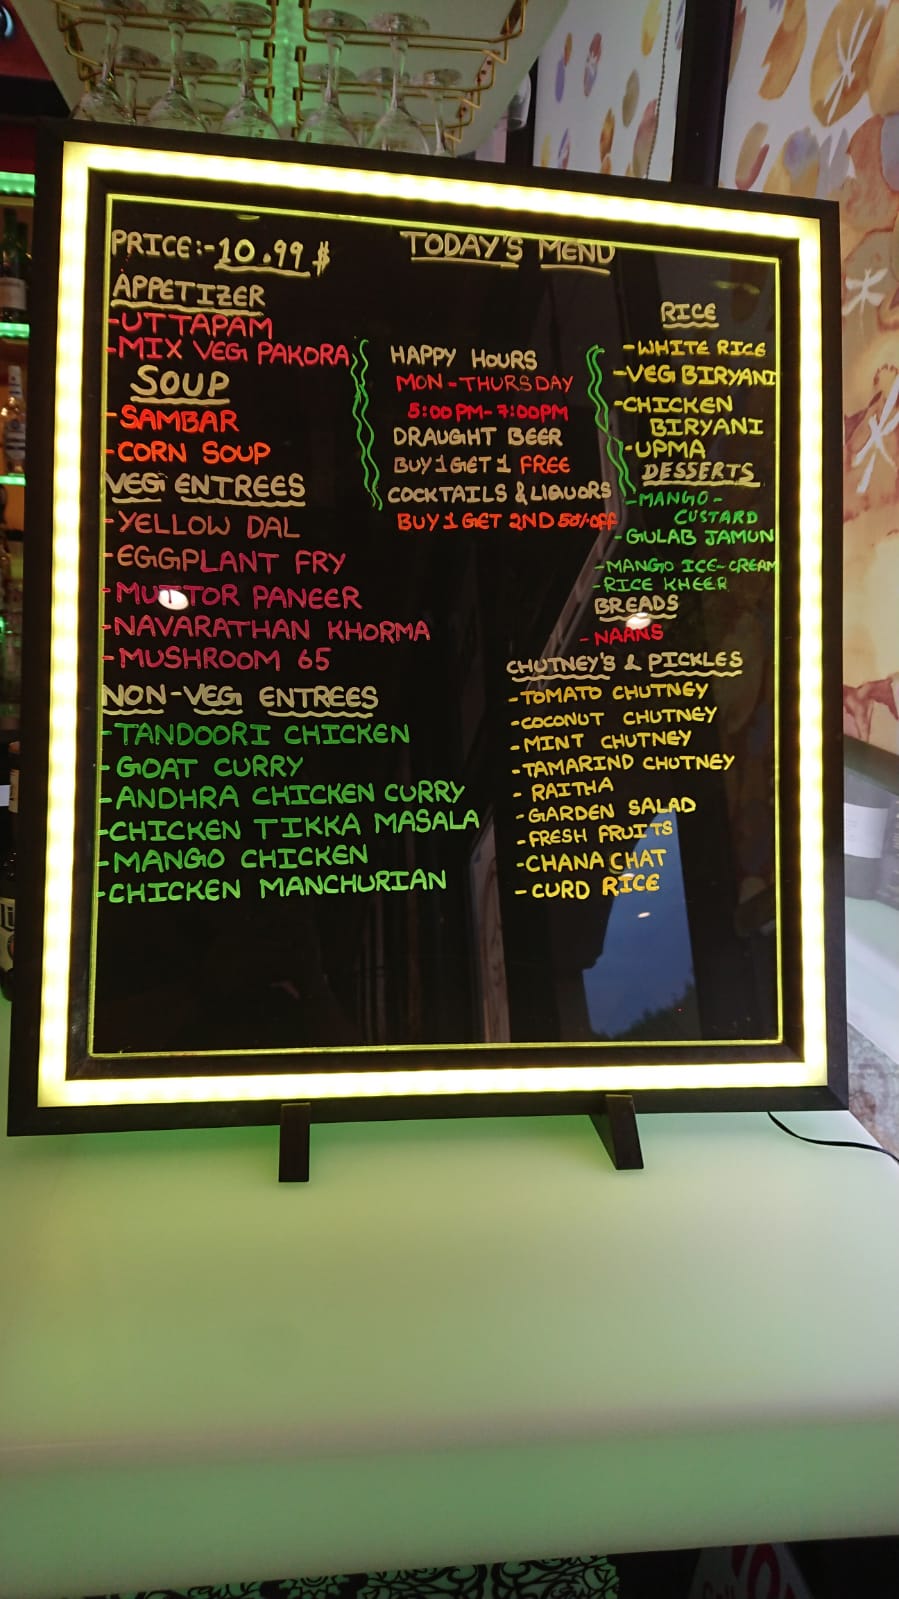 PRICE:- 10.99 $
TODAY'S MENU
APPETIZER
-UTTAPAM
-MIX VEG PAKORA
SOUP
-SAMBAR
-CORN SOUP
VEG ENTREES
-YELLOW DAL
-EGGPLANT FRY
-MUTTOR PANEER
-NAVARATHAN KHORMA
-MUSHROOM 65
NON-VEG ENTREES
-TANDOORI CHICKEN
-GOAT CURRY
-ANDHRA CHICKEN CURRY
-CHICKEN TIKKA MASALA
-MANGO CHICKEN
-CHICKEN MANCHURIAN
HAPPY HOURS
MON-THURSDAY
5:00PM-7:00PM
DRAUGHT BEER
BUY 1 GET 1 FREE
COCKTAILS & LIQUORS
BUY 1 GET 2ND 50% OFF
RICE
-WHITE RICE
-VEG BIRYANI
-CHICKEN
BIRYANI
-UPMA
DESSERTS
-MANGO-
CUSTARD
-GULAB JAMUN
-MANGO ICE-CREAM
-RICE KHEER
BREADS
-NAANS
CHUTNEY'S & PICKLES
-TOMATO CHUTNEY
-COCONUT CHUTNEY
-MINT CHUTNEY
-TAMARIND CHUTNEY
- RAITHA
-GARDEN SALAD
-FRESH FRUITS
-CHANA CHAT
-CURD RICE